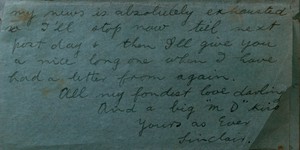 my news is absolutely exhausted
so I'll stop now till next
post day & then I'll give you
a nice long one when I have
had a letter from again.
All my fondest love darling
And a big "M D" kiss
Yours as Ever
Sinclair.